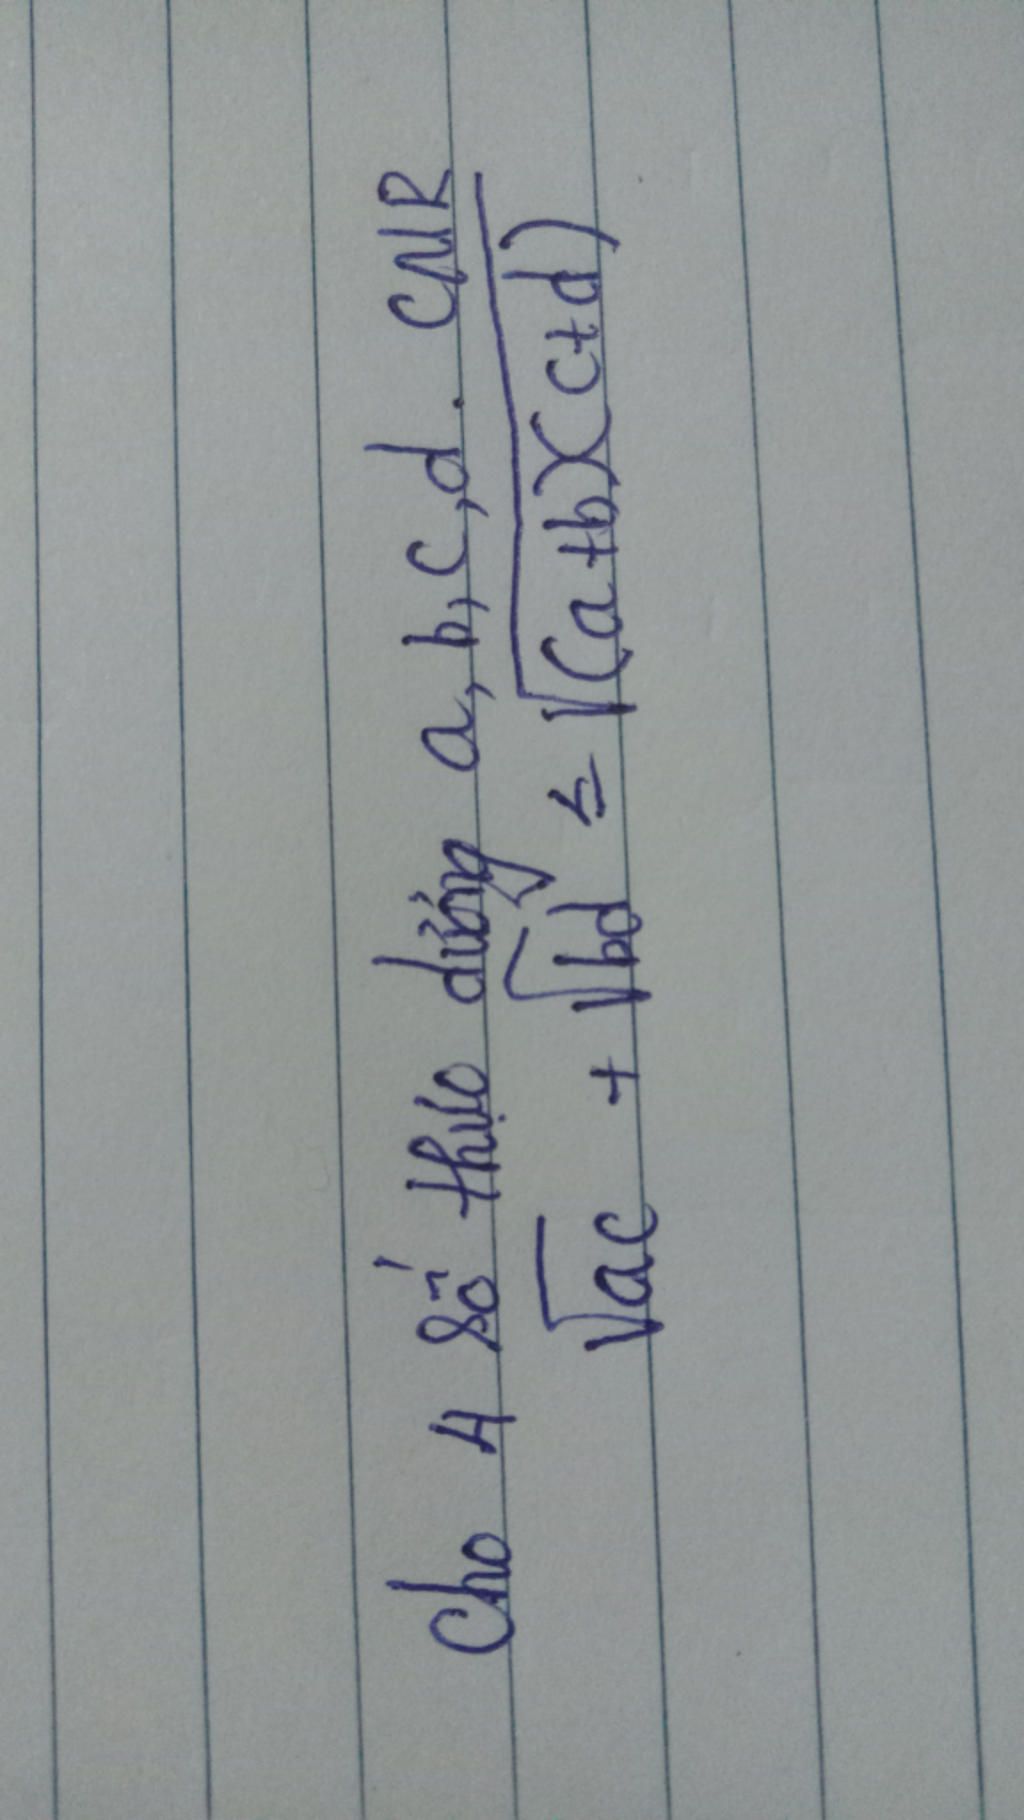 Cho 4 số thực dương a, b, c, d. CMR
√ac + √bd ≤ √(a+b)(c+d)